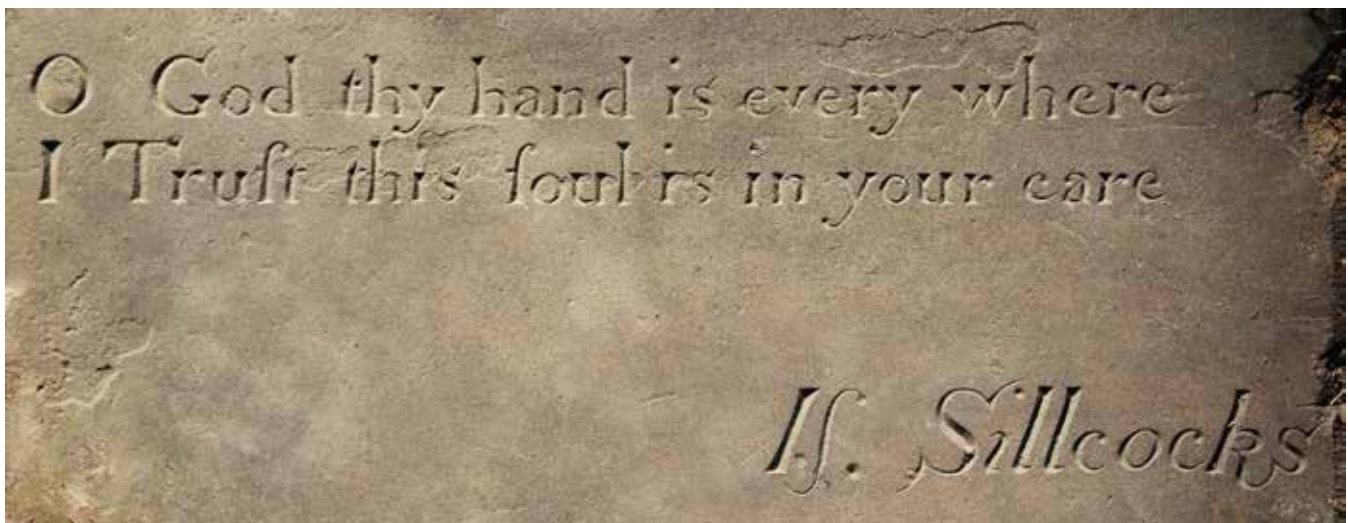 O God thy hand is every where
I Truſt this ſoul is in your care
Iſ. Sillcocks